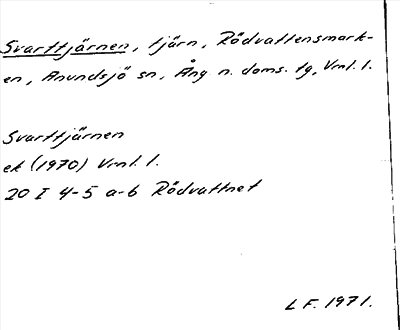 Svarttjärnen, tjärn, Rödvattensmark-
en, Anundsjö sn, Ång n. doms. tg, Vrnl. l.
Svarttjärnen
ek (1970) Vrnl. l.
20 I 4-5 a-b Rödvattnet
L F. 1971.